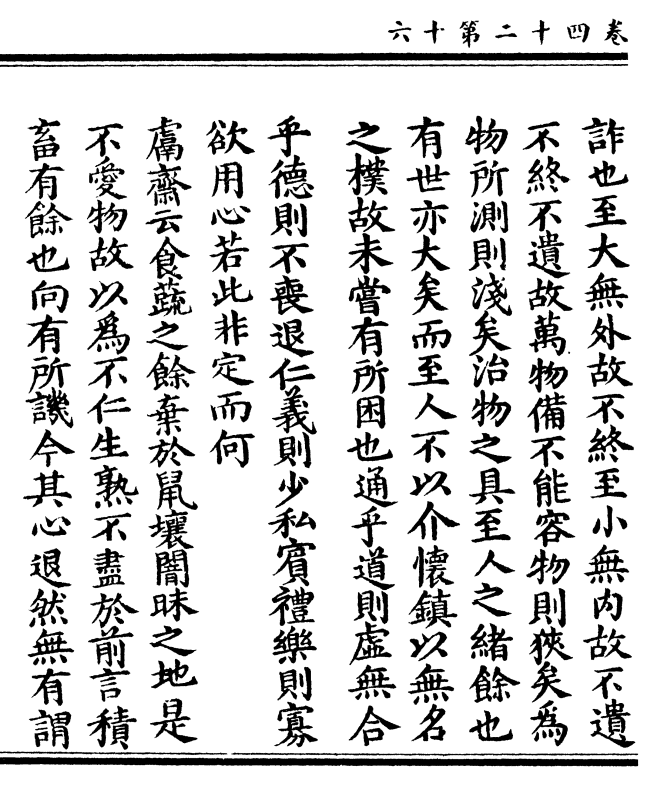 卷四十二第十六
詐也至大無外故不終至小無内故不遺
不終不遺故萬物備不能容物則狹矣爲
物所測則淺矣治物之具至人之緒餘也
有世亦大矣而至人不以介懷鎮以無名
之樸故未嘗有所困也通乎道則虛無合
乎德則不喪退仁義則少私賓禮樂則寡
欲用心若此非定而何
鬳齋云食蔬之餘棄於鼠壤闇昧之地是
不愛物故以爲不仁生熟不盡於前言積
畜有餘也向有所譏今其心退然無有謂